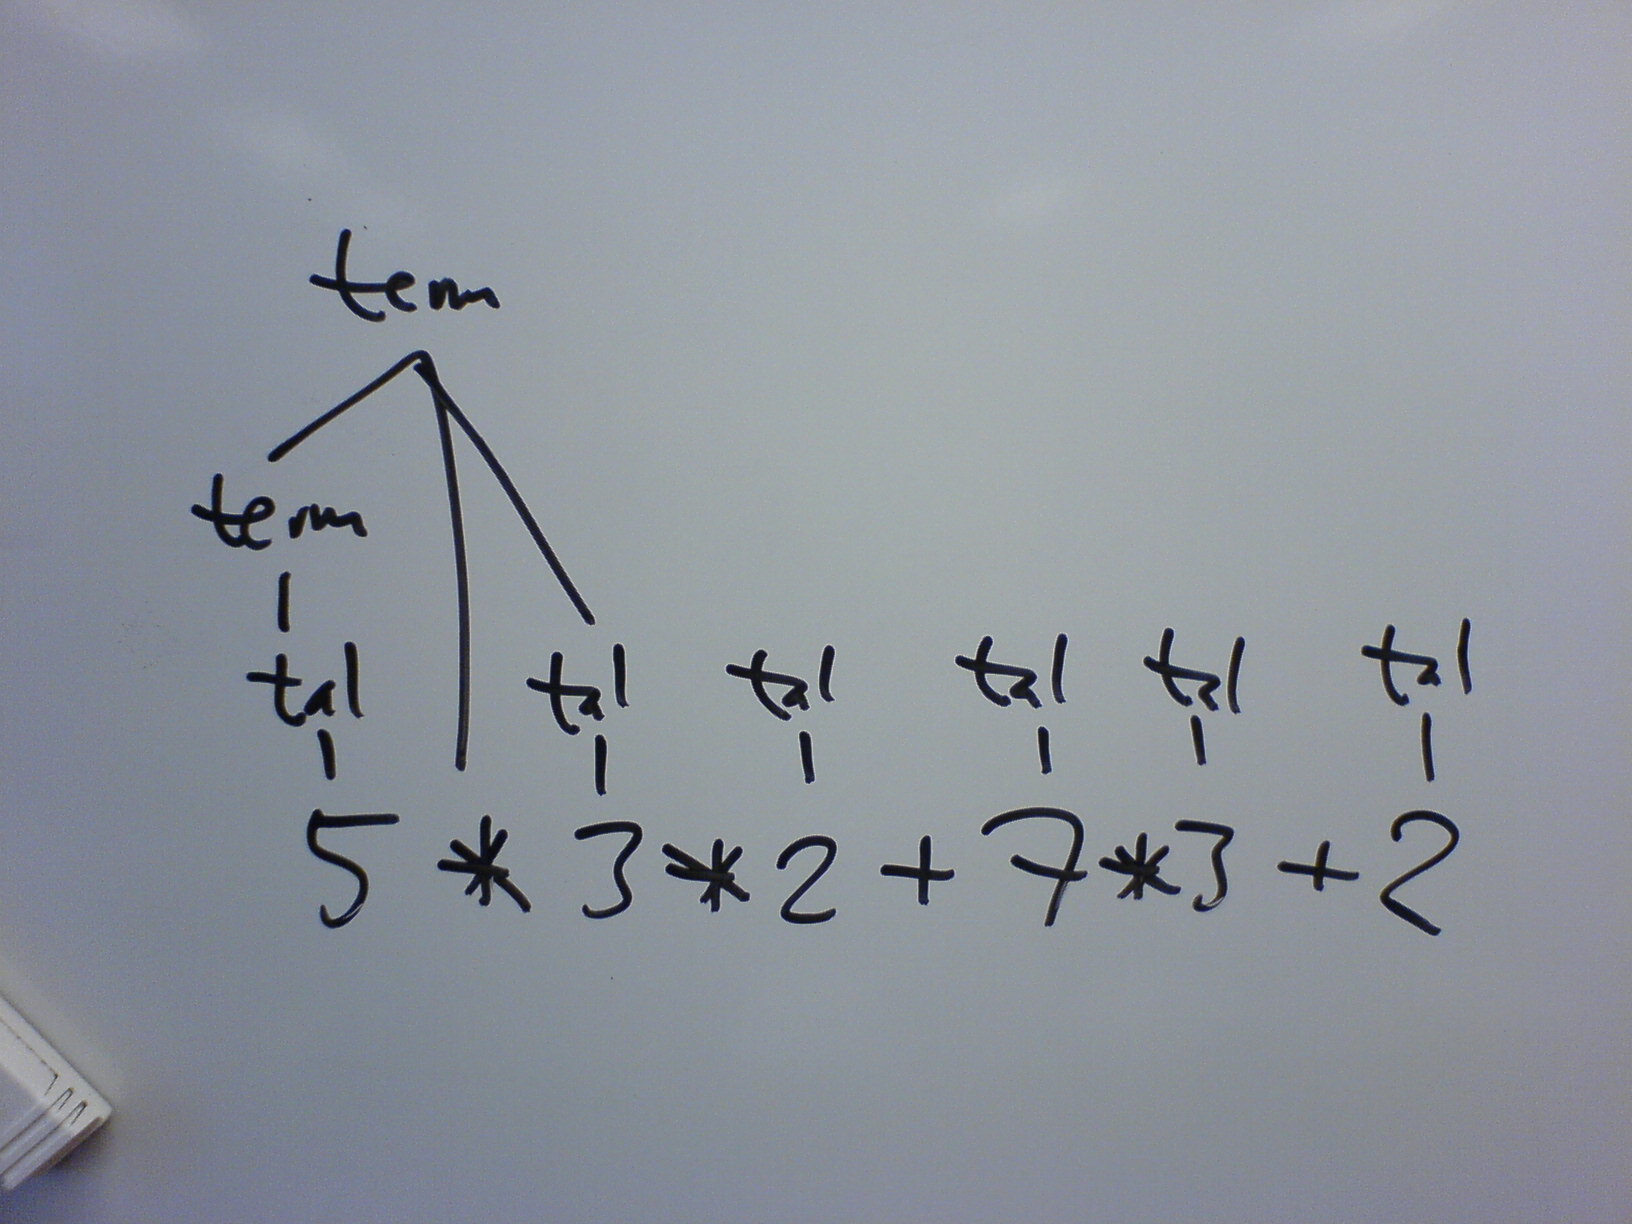 term
term
tal tal tal tal tal tal
5 * 3 * 2 + 7 * 3 + 2